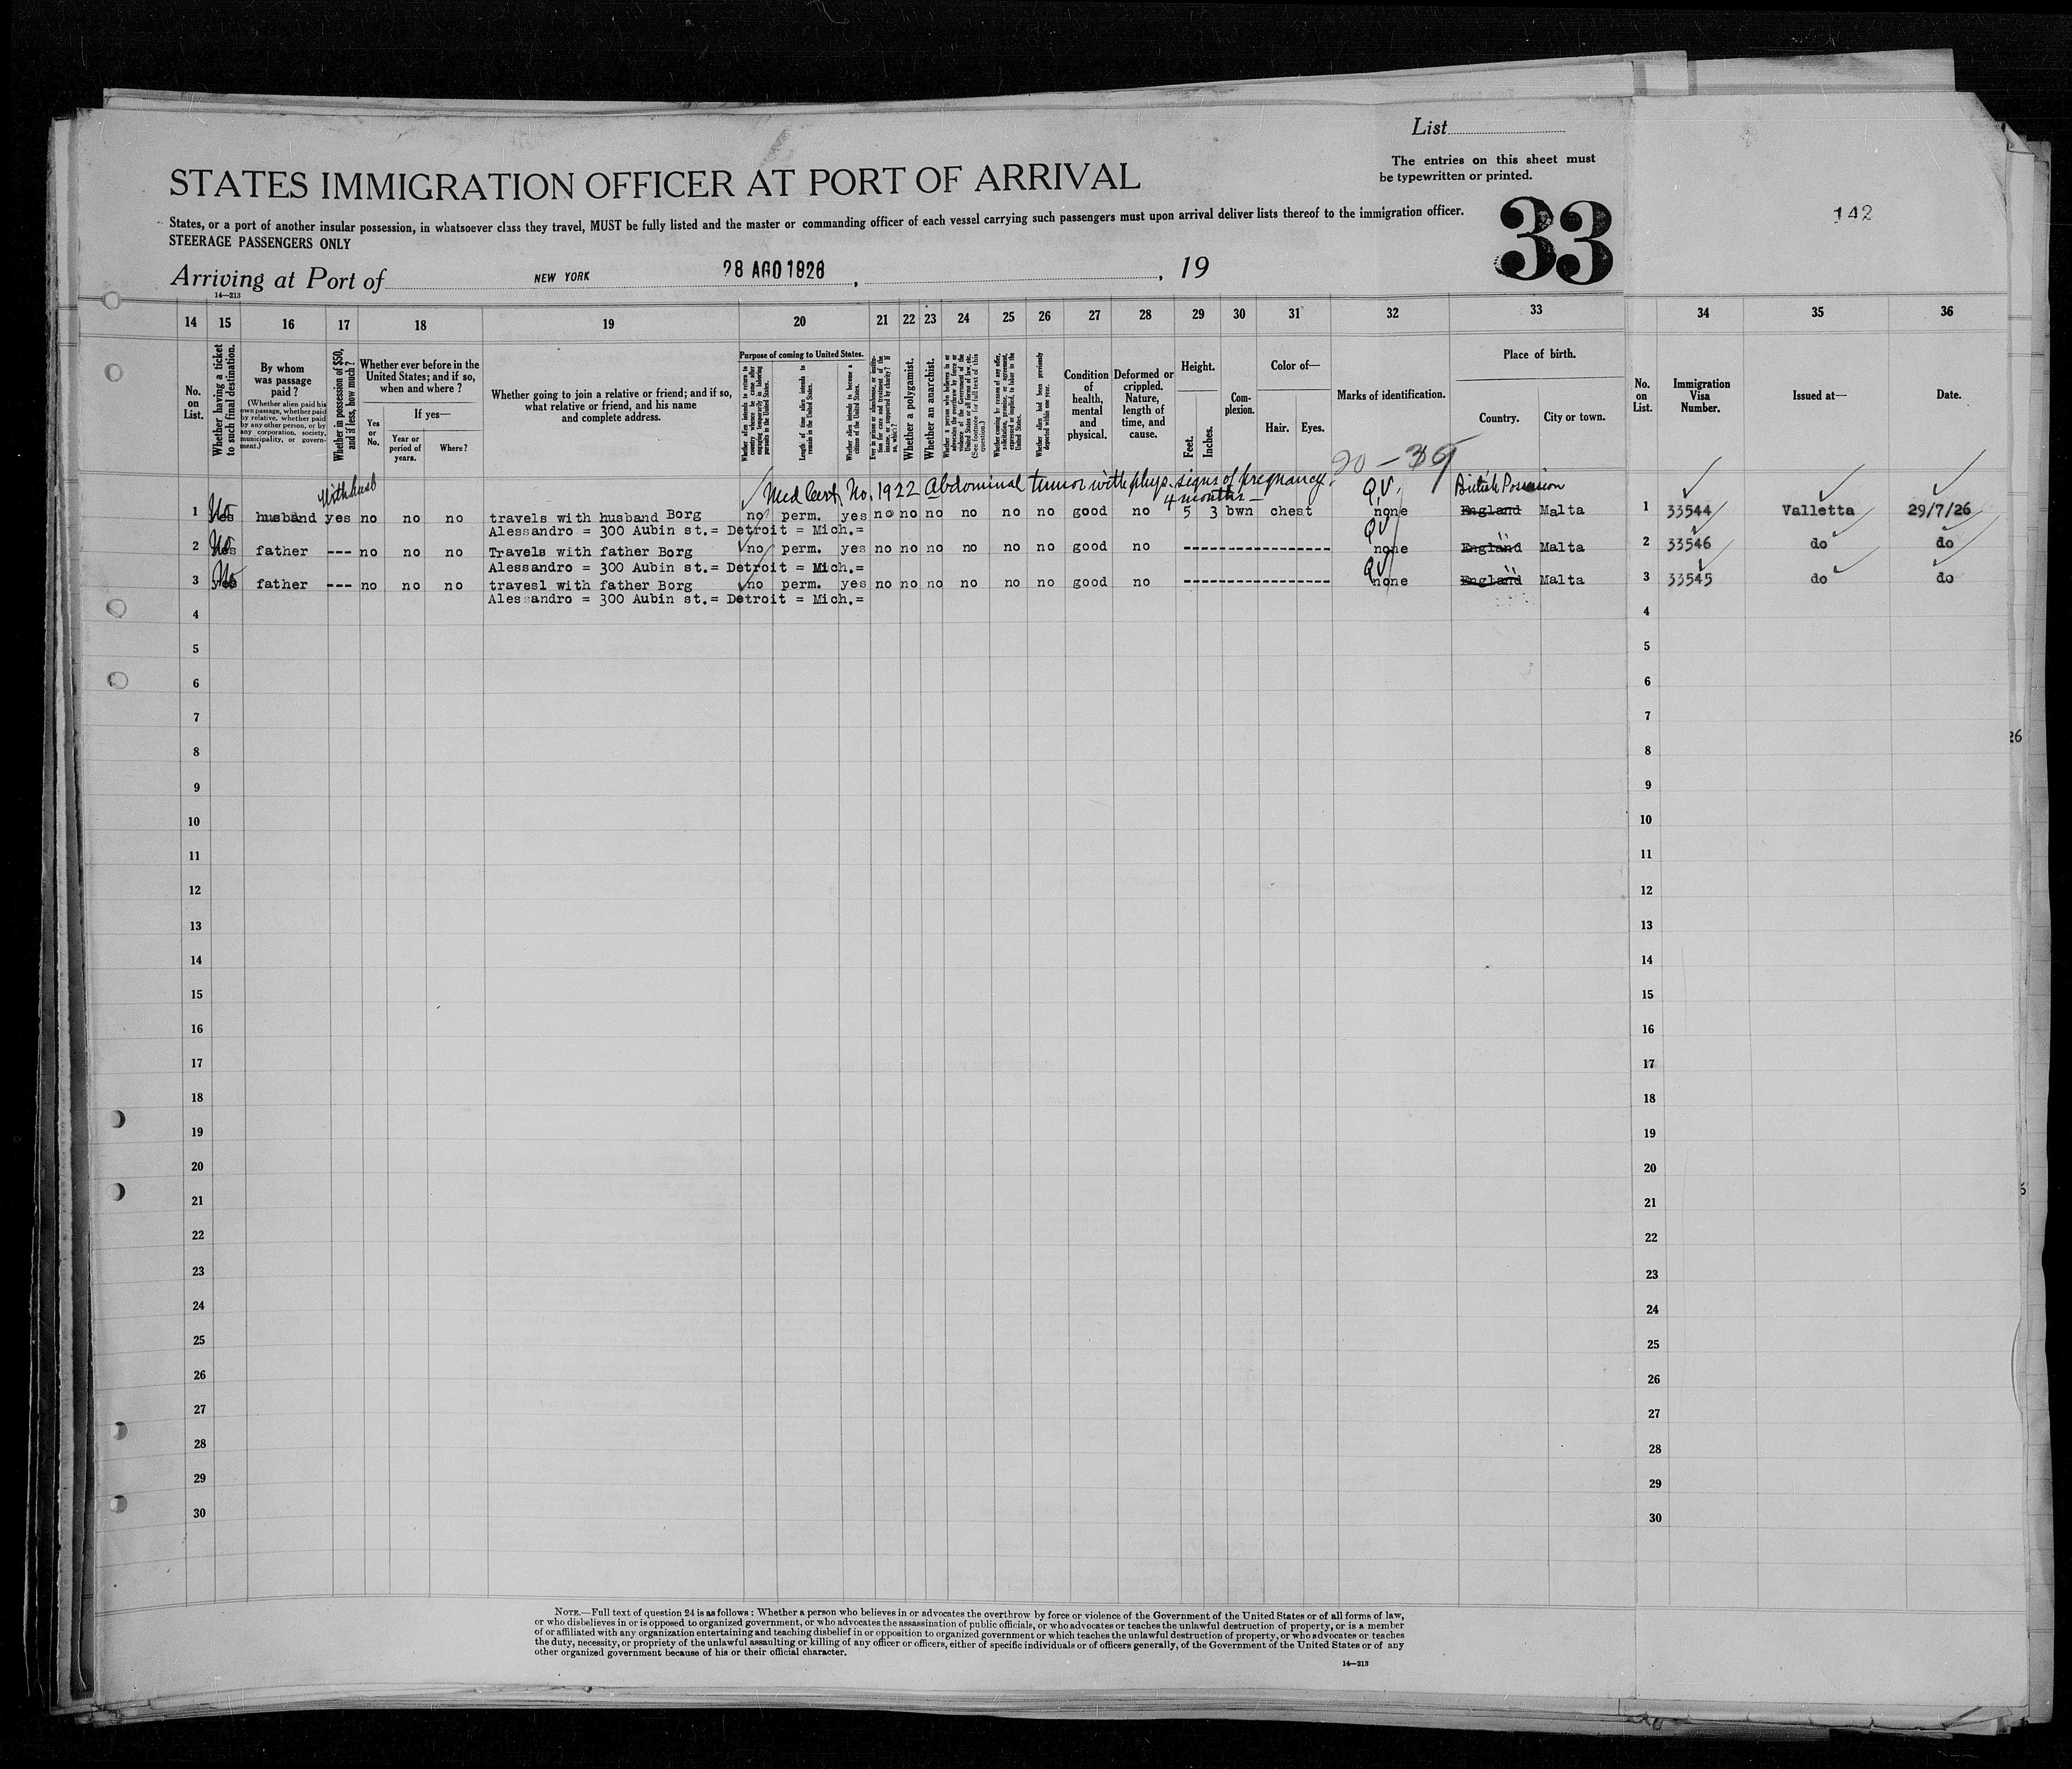 List
The entries on this sheet must
be typewritten or printed.
STATES IMMIGRATION OFFICER AT PORT OF ARRIVAL
33
142
States, or a port of another insular possession, in whatsoever class they travel, MUST be fully listed and the master or commanding officer of each vessel carrying such passengers must upon arrival deliver lists thereof to the immigration officer.
STEERAGE PASSENGERS ONLY
Arriving at Port of NEW YORK 28 AGO 1926, , 19
14—213
14 15 16 17 18 19 20 21 22 23 24 25 26 27 28 29 30 31 32 33 34 35 36
No. on List.
Whether having a ticket to such final destination.
By whom was passage paid?
(Whether alien paid his own passage, whether paid by relative, whether paid by any other person, or by any corporation, society, municipality, or government.)
Whether in possession of $50, and if less, how much?
Whether ever before in the United States; and if so, when and where?
Yes or No.
If yes—
Year or period of years.
Where?
Whether going to join a relative or friend; and if so, what relative or friend, and his name and complete address.
Purpose of coming to United States.
Whether alien intends to return to country whence he came after engaging temporarily in laboring pursuits in the United States.
Length of time alien intends to remain in the United States.
Whether alien intends to become a citizen of the United States.
Ever in prison or almshouse, or institution for care and treatment of the insane, or supported by charity? If so, which?
Whether a polygamist.
Whether an anarchist.
Whether a person who believes in or advocates the overthrow by force or violence of the Government of the United States or all forms of law, etc. (See footnote for full text of this question.)
Whether coming by reason of any offer, solicitation, promise, or agreement, expressed or implied, to labor in the United States.
Whether alien had been previously deported within one year.
Condition of health, mental and physical.
Deformed or crippled. Nature, length of time, and cause.
Height.
Feet. Inches.
Complexion.
Color of—
Hair. Eyes.
Marks of identification.
Place of birth.
Country. City or town.
No. on List.
Immigration Visa Number.
Issued at—
Date.
20 - 39
With husb Med Cert No. 1922 Abdominal tumor with phys. signs of pregnancy. Q.V. British Possession
4 months —
1 No yes husband yes no no no travels with husband Borg no perm. yes no no no no no no good no 5 3 bwn chest none England Malta 1 33544 Valletta 29/7/26
Alessandro = 300 Aubin st.= Detroit = Mich.= QV
2 No yes father --- no no no Travels with father Borg no perm. yes no no no no no no good no ------------------ none England " Malta 2 33546 do do
Alessandro = 300 Aubin st.= Detroit = Mich.= QV
3 No yes father --- no no no travesl with father Borg no perm. yes no no no no no no good no ------------------ none England " Malta 3 33545 do do
Alessandro = 300 Aubin st.= Detroit = Mich.=
4 4
5 5
6 6
7 7
26
8 8
9 9
10 10
11 11
12 12
13 13
14 14
15 15
16 16
17 17
18 18
19 19
20 20
21 21
22 22
23 23
24 24
25 25
26 26
27 27
28 28
29 29
30 30
NOTE.—Full text of question 24 is as follows: Whether a person who believes in or advocates the overthrow by force or violence of the Government of the United States or of all forms of law,
or who disbelieves in or is opposed to organized government, or who advocates the assassination of public officials, or who advocates or teaches the unlawful destruction of property, or is a member
of or affiliated with any organization entertaining and teaching disbelief in or opposition to organized government or which teaches the unlawful destruction of property, or who advocates or teaches
the duty, necessity, or propriety of the unlawful assaulting or killing of any officer or officers, either of specific individuals or of officers generally, of the Government of the United States or of any
other organized government because of his or their official character.
14—213